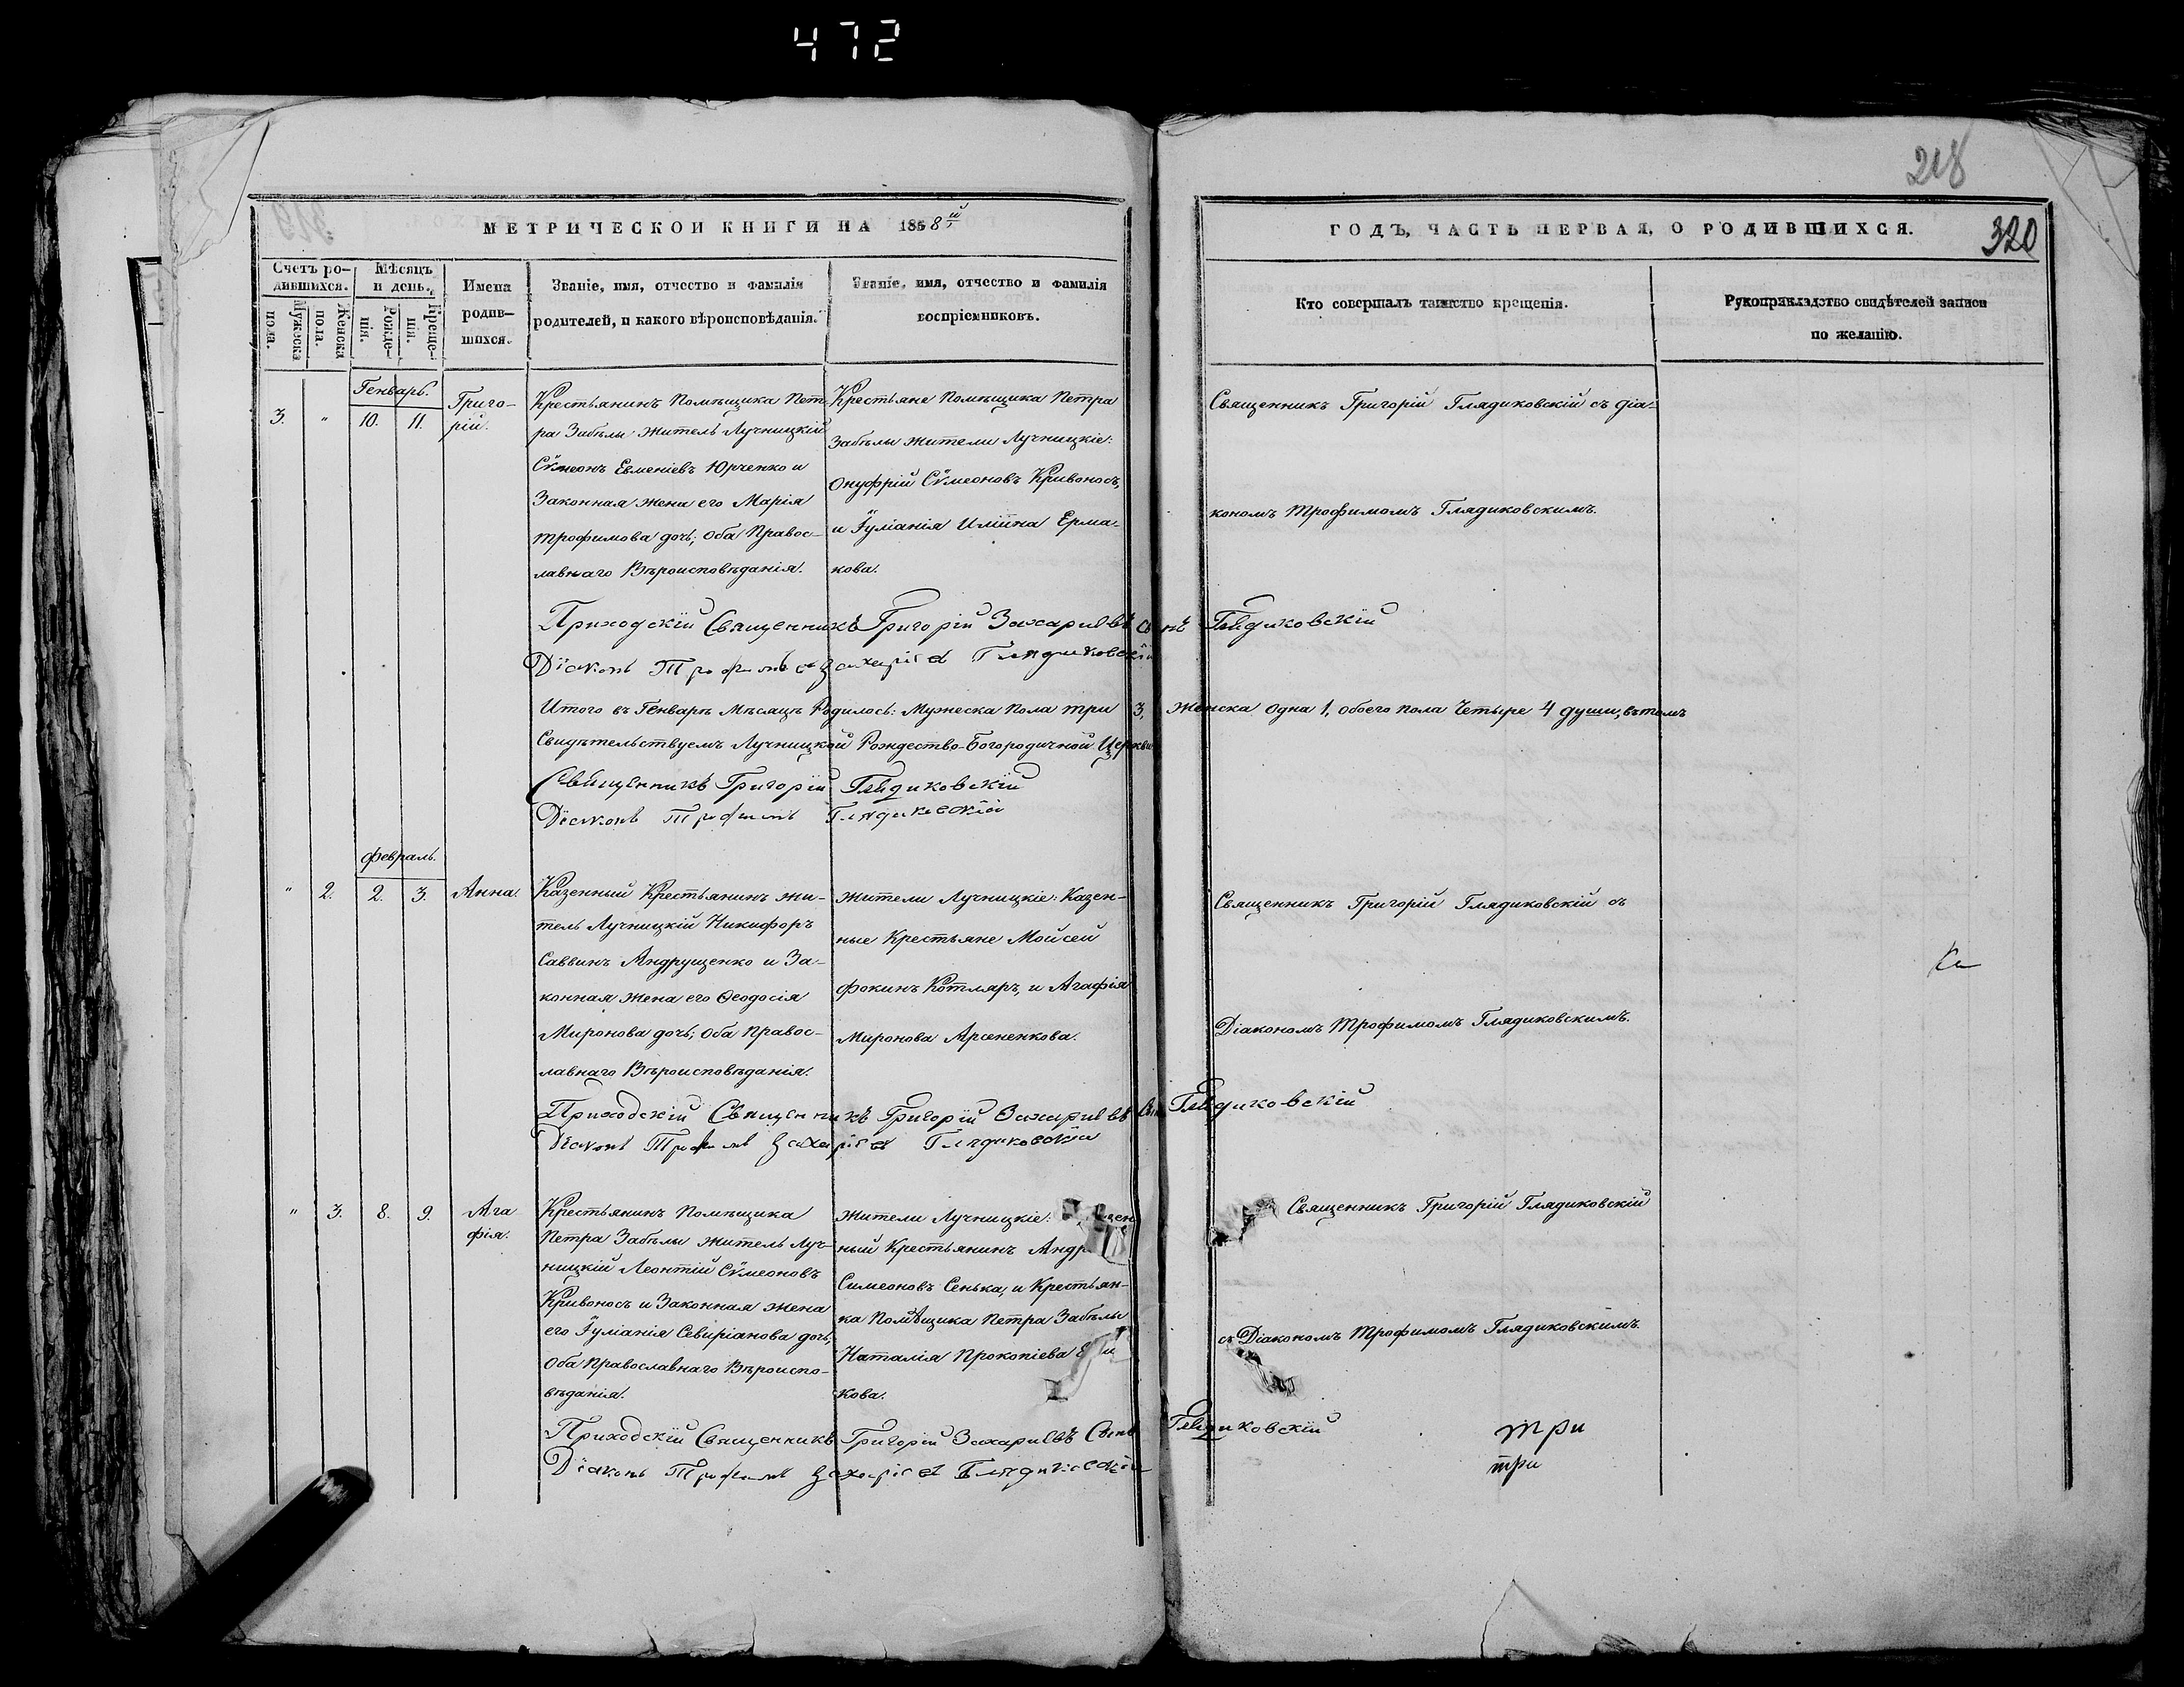 472
218
МЕТРИЧЕСКОЙ КНИГИ НА 1858й
ГОДЪ, ЧАСТЬ ПЕРВАЯ, О РОДИВШИХСЯ.
320
Счетъ ро-
дившихся.
Мужеска
пола.
Женска
пола.
Мѣсяцъ
и день.
Рожде-
нія.
Креще-
нія.
Имена
родив-
шихся.
Званіе, имя, отчество и фамилія
родителей, и какого вѣроисповѣданія.
Званіе, имя, отчество и фамилія
воспріемниковъ.
Кто совершалъ таинство крещенія.
Рукоприкладство свидѣтелей записи
по желанію.
Генварь.
3. " 10. 11.
Григо-
рій.
Крестьянинъ Помѣщика Пет-
ра Забѣлы житель Лучницкій
Сѵмеонъ Евменіевъ Юрченко и
Законная жена его Марія
Трофимова дочь; Оба Правос-
лавнаго Вѣроисповѣданія.
Крестьяне Помѣщика Петра
Забѣлы жители Лучницкіе:
Онуфрій Сѵмеоновъ Кривоносъ,
и Іуліанія Иліина Ерма-
кова.
Священникъ Григорій Глядиковскій съ діа-
кономъ Трофимомъ Глядиковскимъ.
Приходскій Священникъ Григорій Захаріевъ сынъ Глядиковскій
Діаконъ Трофимъ Захаріевъ Глядиковскій
Итого въ Генварѣ Мѣсяцѣ Родилось: Мужеска Пола три 3, Женска одна 1, обоего пола Четыре 4 души, въ томъ
Свидѣтельствуемъ Лучницкой Рождество-Богородичной Церкви
Священникъ Григорій Глядиковскій
Діаконъ Трофимъ Глядиковскій
Февраль.
" 2. 2. 3.
Анна.
Казенный Крестьянинъ жи-
тель Лучницкій Никифоръ
Саввинъ Андрущенко и За-
конная жена его Ѳеодосія
Миронова дочь; Оба Правос-
лавнаго Вѣроисповѣданія.
Жители Лучницкіе: Казен-
ные Крестьяне Мойсей
Фокинъ Котляръ, и Агафія
Миронова Арсененкова.
Священникъ Григорій Глядиковскій съ
Діакономъ Трофимомъ Глядиковскимъ.
Приходскій Священникъ Григорій Захаріевъ Сынъ Глядиковскій
Діаконъ Трофимъ Захаріевъ Глядиковскій
" 3. 8. 9.
Ага
фія.
Крестьянинъ Помѣщика
Петра Забѣлы житель Луч-
ницкій Леонтій Сѵмеоновъ
Кривоносъ и Законная жена
его Іуліанія Севиріанова дочь,
Оба Православнаго Вѣроиспо-
вѣданія.
Жители Лучницкіе:
ный Крестьянинъ
Симеоновъ Сенька, и Крестьян-
ка Помѣщика Петра Забѣлы
Наталія Прокопіева
кова.
Священникъ Григорій Глядиковскій
съ Діакономъ Трофимомъ Глядиковскимъ.
Приходскій Священникъ Григорій Захаріевъ Сынъ Глядиковскій
Діаконъ Трофимъ Захаріевъ Глядиковскій
три
три